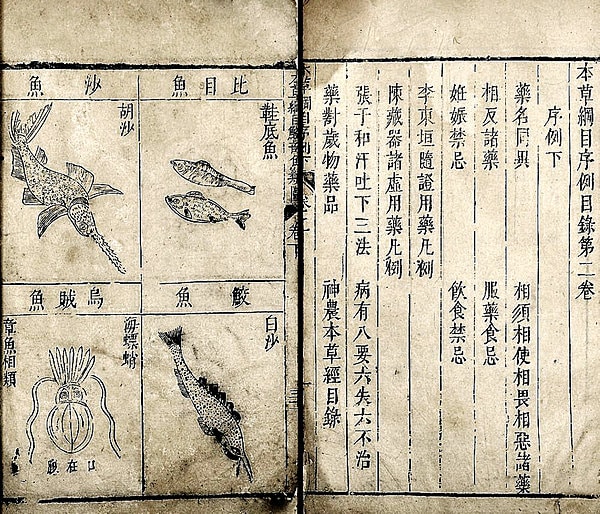 本草綱目序例目錄第二卷
序例下
藥名同異　相須相使相畏相惡諸藥
相反諸藥　服藥食忌
姙娠禁忌　飲食禁忌
李東垣隨證用藥凡例
陳藏器諸虛用藥凡例
張子和汗吐下三法　病有八要六失六不治
藥對歲物藥品　神農本草經目錄
比目魚
鞋底魚
沙魚
胡沙
鮫魚
白沙
烏賊魚
海螵蛸
口在腹
章魚相類